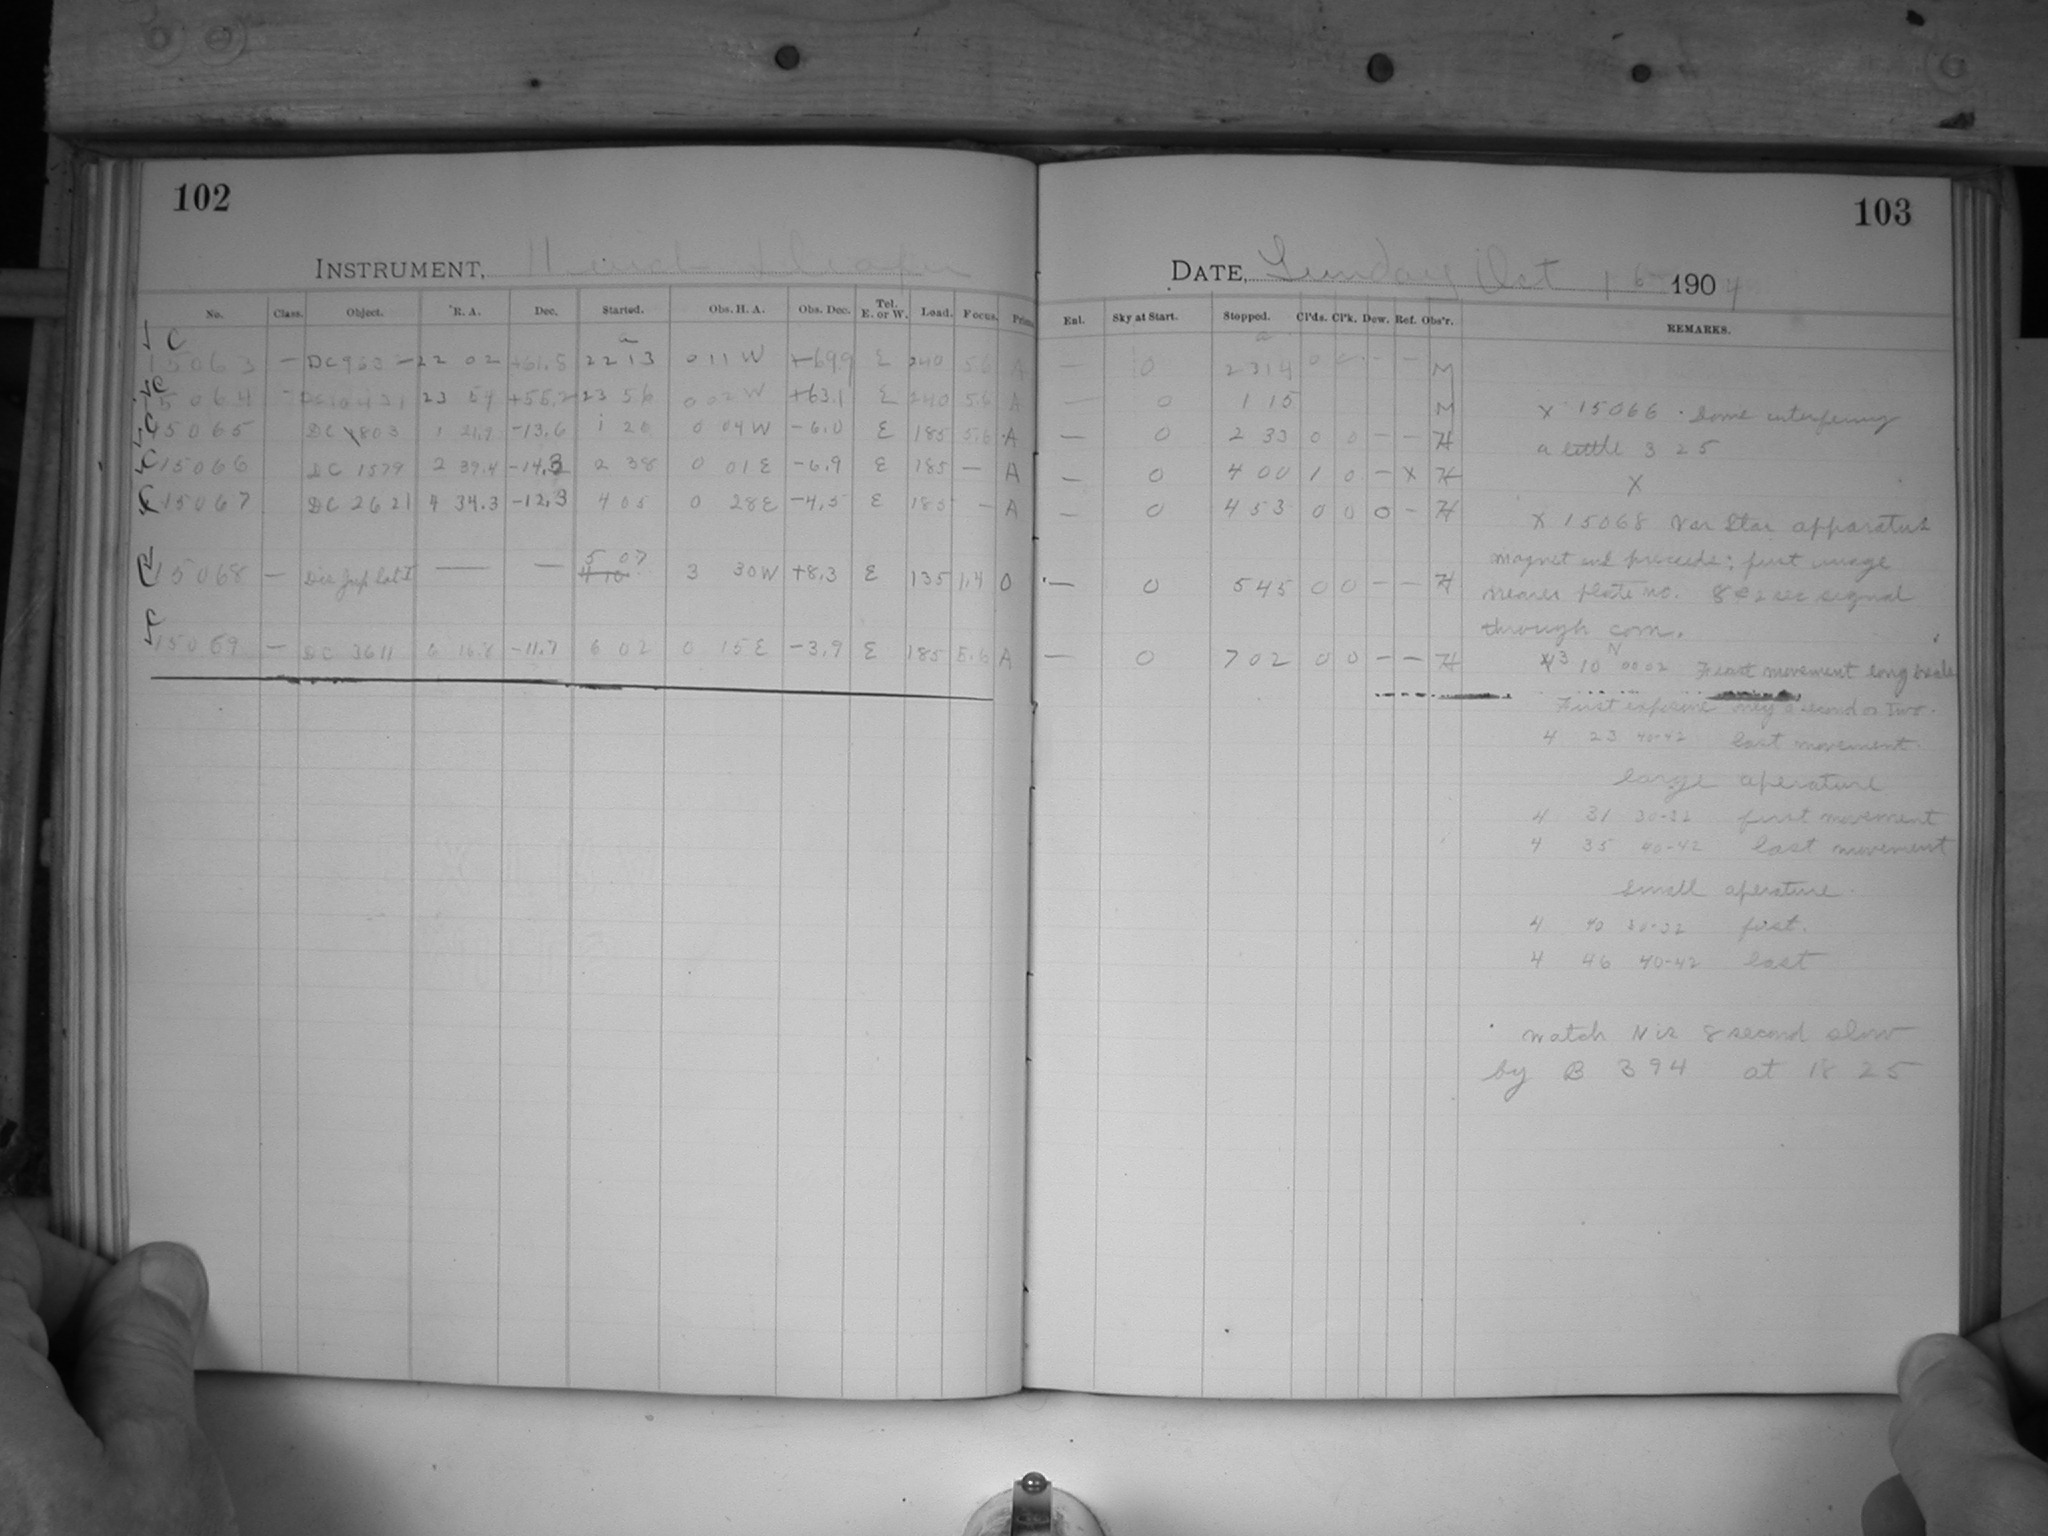 102
103
INSTRUMENT,
DATE, Sunday Oct 16 1904
No. Class. Object. R. A. Dec. Started. Obs. H. A. Obs. Dec. Tel. E. or W. Load. Focus. Enl. Sky at Start. Stopped. Cl'ds. Cl'k. Dew. Ref. Obs'r. REMARKS.
a a
C 15063 — DC 963 — 22 02 +61.8 22 13 0 11 W +69.9 E 240 5.6 A — 0 23 14 0 0 - - M
15064 — 23 54 +55.2 23 56 0 02 W +63.1 E 240 5.6 A — 0 1 15 M
15065 DC 803 1 21.9 -13.6 1 20 0 04 W -6.0 E 185 5.6 A — 0 2 33 0 0 - - H
15066 DC 1579 2 39.4 -14.3 2 38 0 01 E -6.9 E 185 — A — 0 4 00 1 0 - X H
15067 DC 2621 4 34.3 -12.3 4 05 0 28 E -4.5 E 185 - A — 0 4 53 0 0 0 - H
5 07
15068 — — — 4 10 3 30 W +8.3 E 135 1.4 O — 0 5 45 0 0 - - H
15069 — DC 3611 6 16.8 -11.7 6 02 0 15 E -3.9 E 185 5.6 A — 0 7 02 0 0 - - H
X 15066 . Dome interfering
a little 3 25
X
X 15068 Var Star apparatus
magnet end preceeds; first image
nearer plate no. 8 @ 2 sec signal
through com.
N
10 00 02 First movement long scale
First exposure only a second or two.
4 23 40-42 last movement.
large aperature
4 31 30-32 first movement
4 35 40-42 last movement
small aperature.
4 40 30-32 first.
4 46 40-42 last
watch N is 8 second slow
by B 394 at 18 25